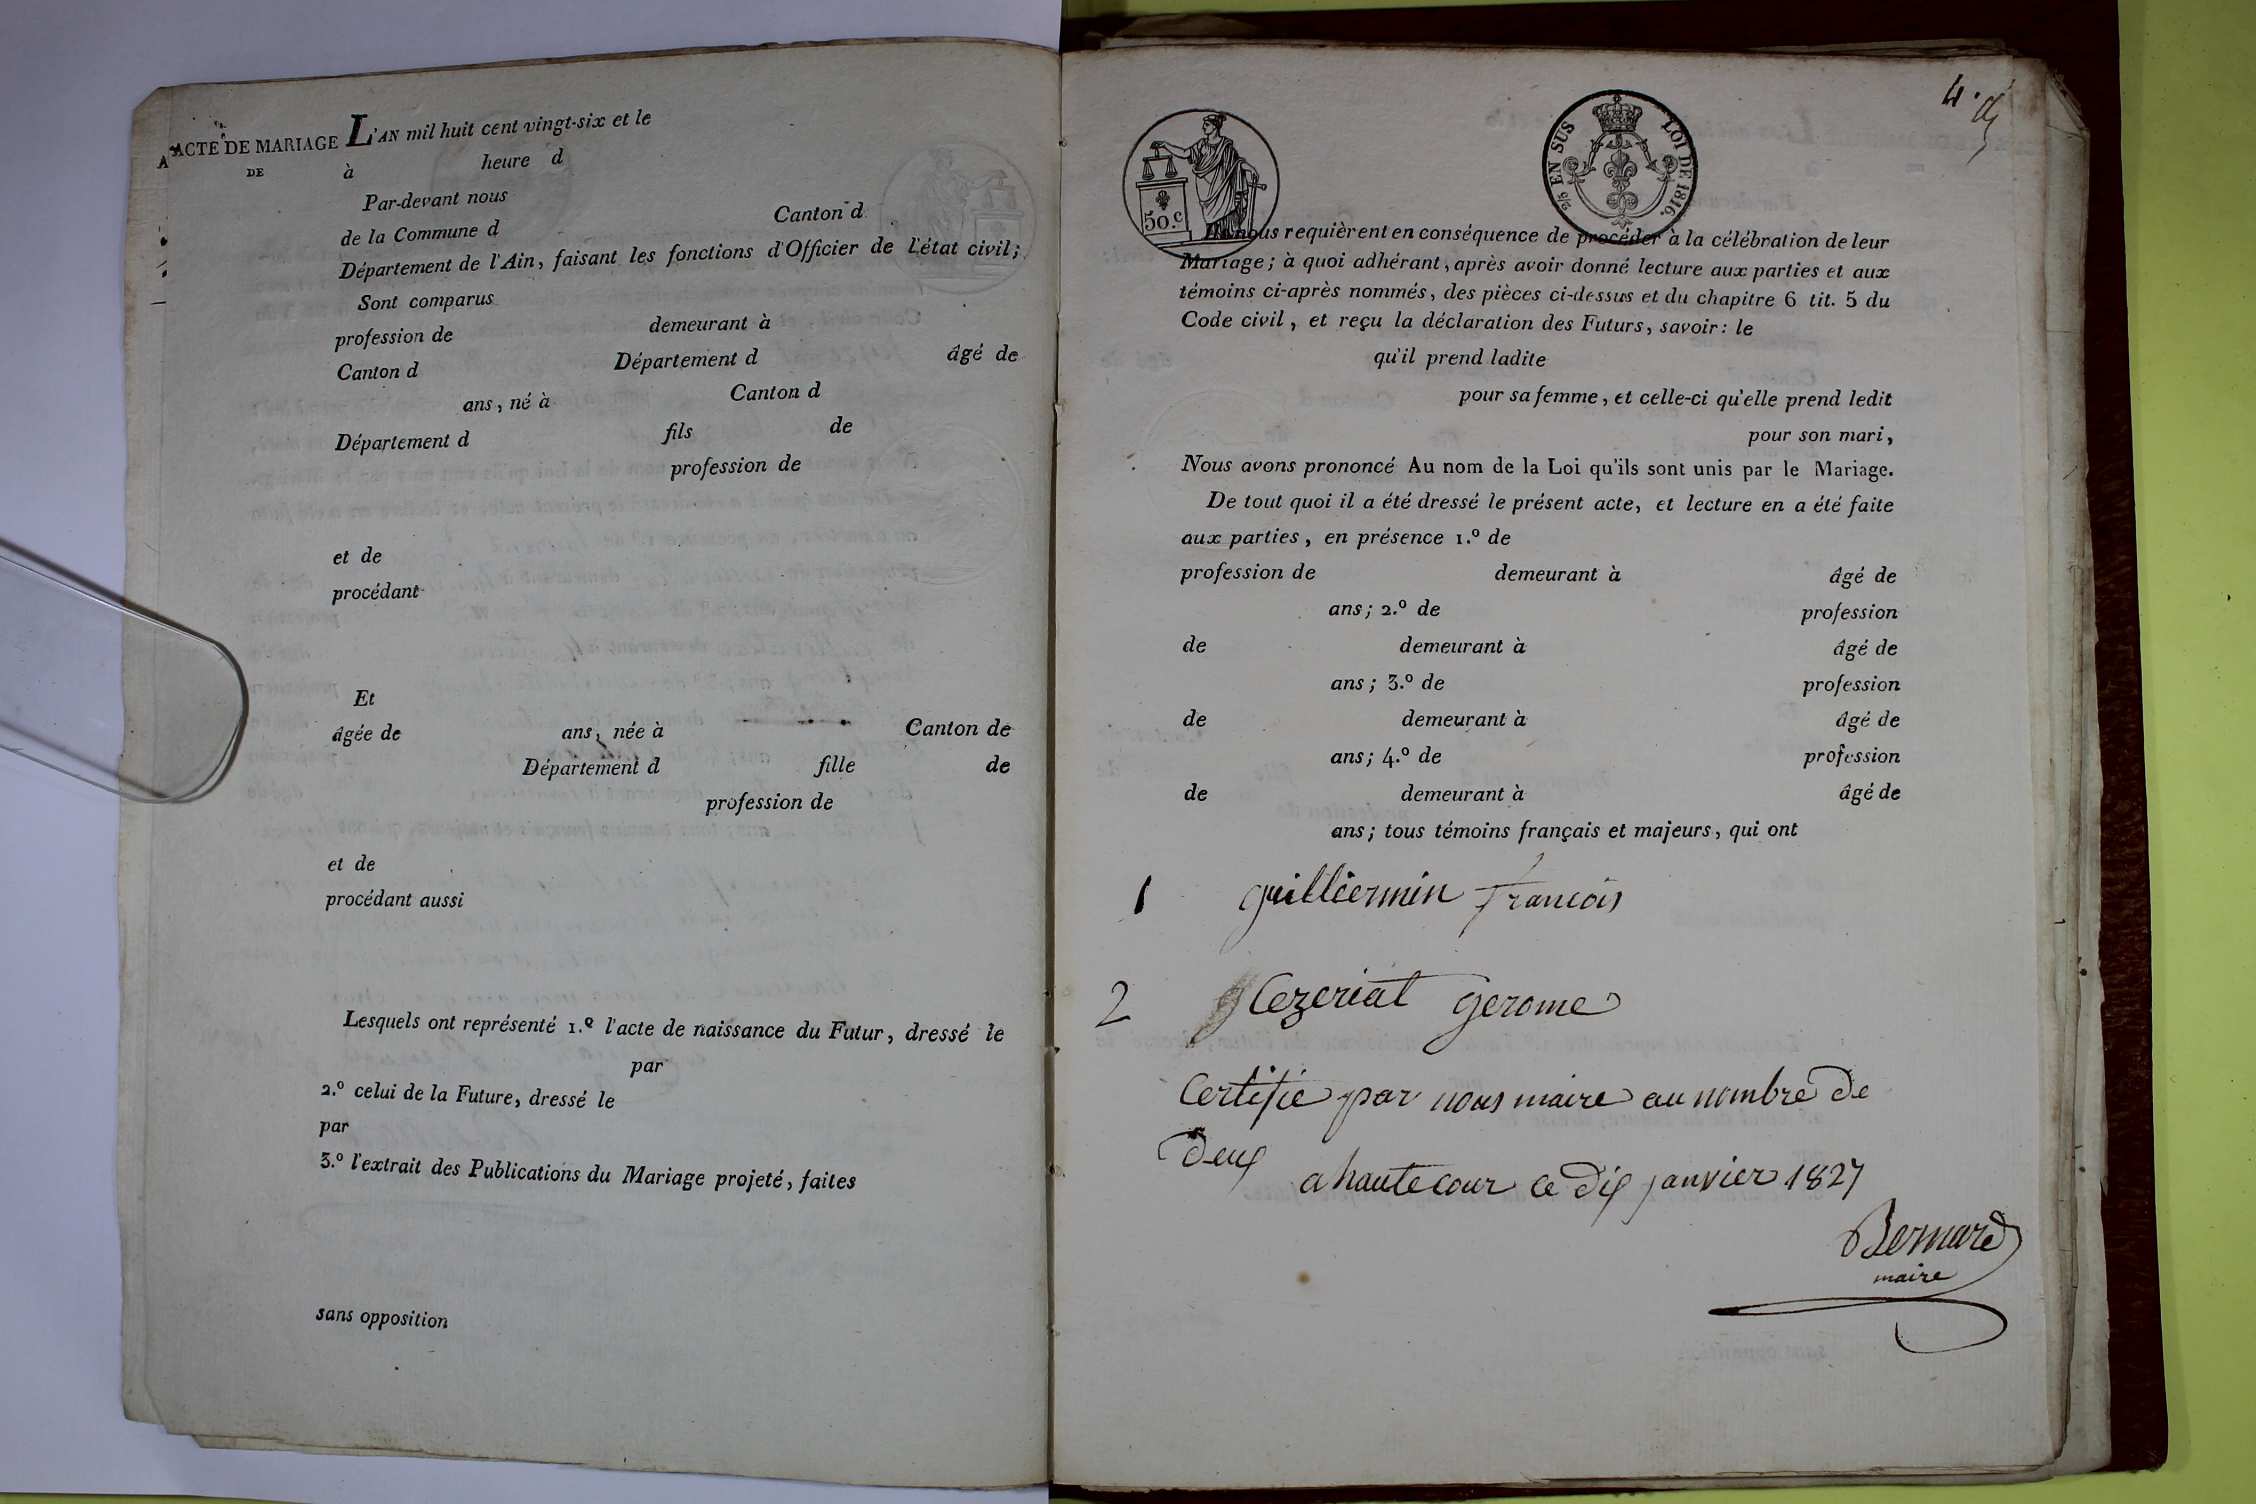 ACTE DE MARIAGE L'AN mil huit cent vingt-six et le
DE à heure d
Par-devant nous
de la Commune d Canton d
Département de l'Ain, faisant les fonctions d'Officier de l'état civil;
Sont comparus
profession de demeurant à
Canton d Département d âgé de
ans, né à Canton d
Département d fils de
profession de
et de
procédant
Et
âgée de ans, née à Canton de
Département d fille de
profession de
et de
procédant aussi
Lesquels ont représenté 1.º l'acte de naissance du Futur, dressé le
par
2.º celui de la Future, dressé le
par
3.º l'extrait des Publications du Mariage projeté, faites
sans opposition
4.
50.c
2/5 EN SUS LOI DE 1816.
nous requièrent en conséquence de procéder à la célébration de leur
Mariage; à quoi adhérant, après avoir donné lecture aux parties et aux
témoins ci-après nommés, des pièces ci-dessus et du chapitre 6 tit. 5 du
Code civil, et reçu la déclaration des Futurs, savoir: le
qu'il prend ladite
pour sa femme, et celle-ci qu'elle prend ledit
pour son mari,
Nous avons prononcé Au nom de la Loi qu'ils sont unis par le Mariage.
De tout quoi il a été dressé le présent acte, et lecture en a été faite
aux parties, en présence 1.º de
profession de demeurant à âgé de
ans; 2.º de profession
de demeurant à âgé de
ans; 3.º de profession
de demeurant à âgé de
ans; 4.º de profession
de demeurant à âgé de
ans; tous témoins français et majeurs, qui ont
1 guilliermin francois
2 Cezeriat gerome
Certifie par nous maire au nombre de
deux
a hautecour ce dix janvier 1827
Bernard
maire